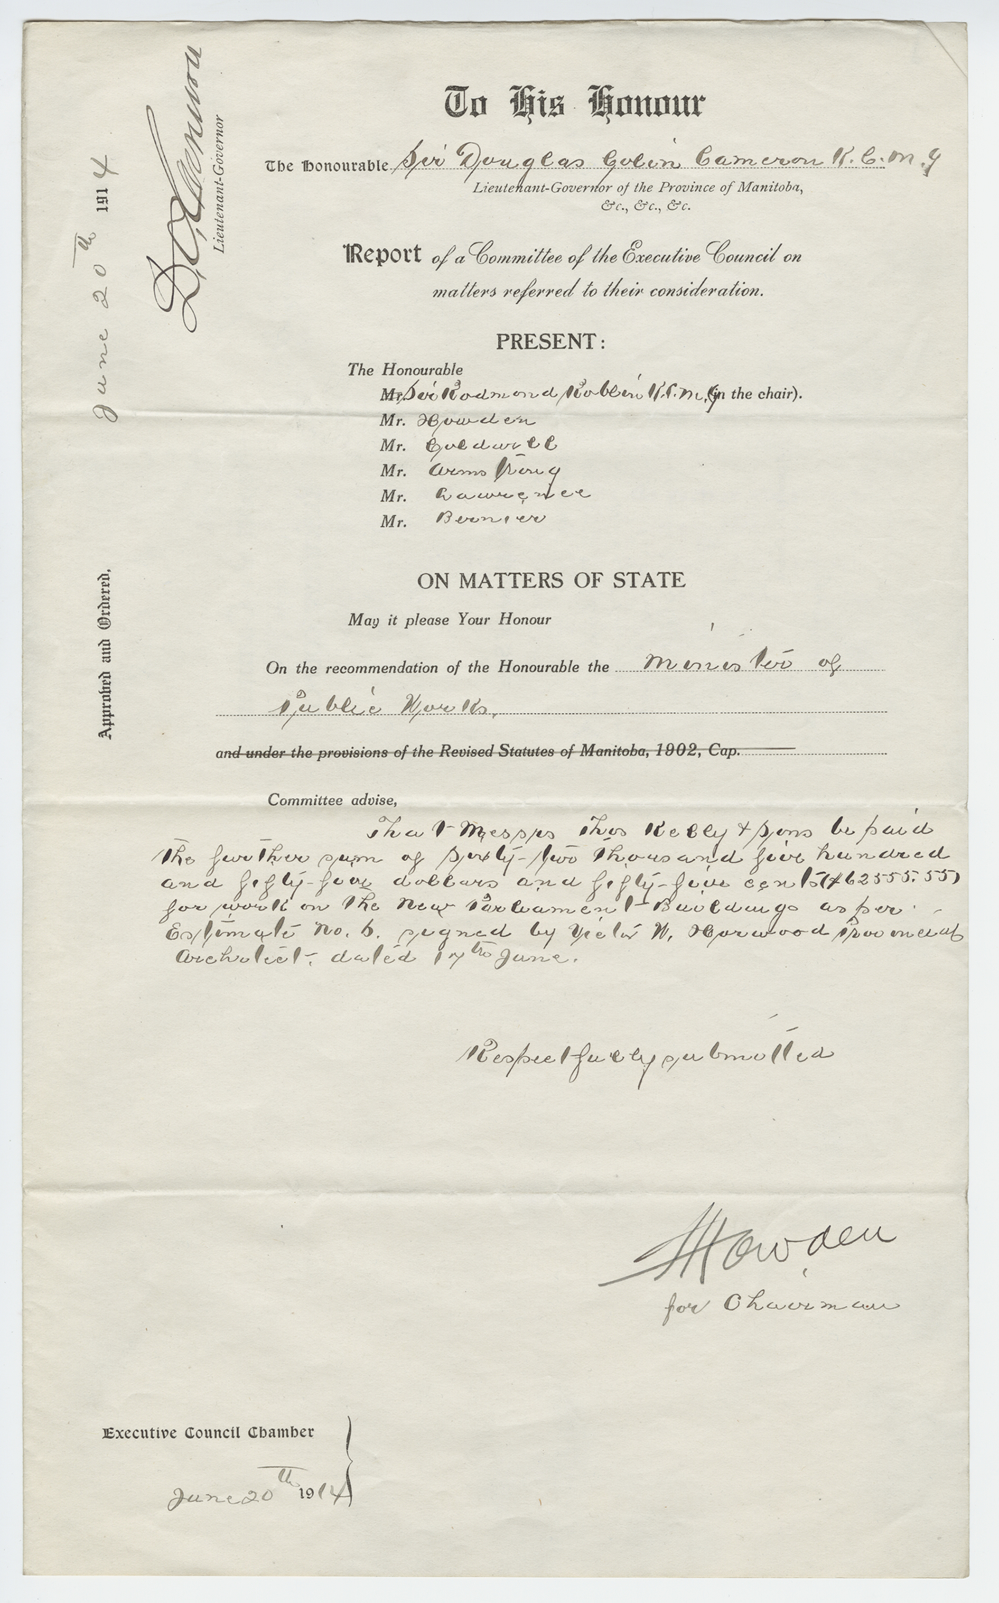 To His Honour
The Honourable Sir Douglas Colin Cameron K.C.M.G
Lieutenant-Governor of the Province of Manitoba,
&c., &c., &c.
Report of a Committee of the Executive Council on
matters referred to their consideration.
PRESENT:
The Honourable
Mr. Sir Rodmond Roblin K.C.M.G (in the chair).
Mr. Howden
Mr. Coldwell
Mr. Armstrong
Mr. Lawrence
Mr. Bernier
ON MATTERS OF STATE
May it please Your Honour
On the recommendation of the Honourable the Minister of
Public Works.
and under the provisions of the Revised Statutes of Manitoba, 1902, Cap.
Committee advise,
That Messrs Thos Kelly & Sons be paid
the further sum of sixty-two thousand five hundred
and fifty-five dollars and fifty-five cents ($62555.55)
for work on the New Parliament Buildings as per
Estimate No. 6. signed by Victor W. Horwood Provincial
Architect. dated 17th June.
Respectfully submitted
Howden
for Chairman
Executive Council Chamber
June 20th 1914
Approved and Ordered,
June 20th 1914
D.C. Cameron
Lieutenant-Governor